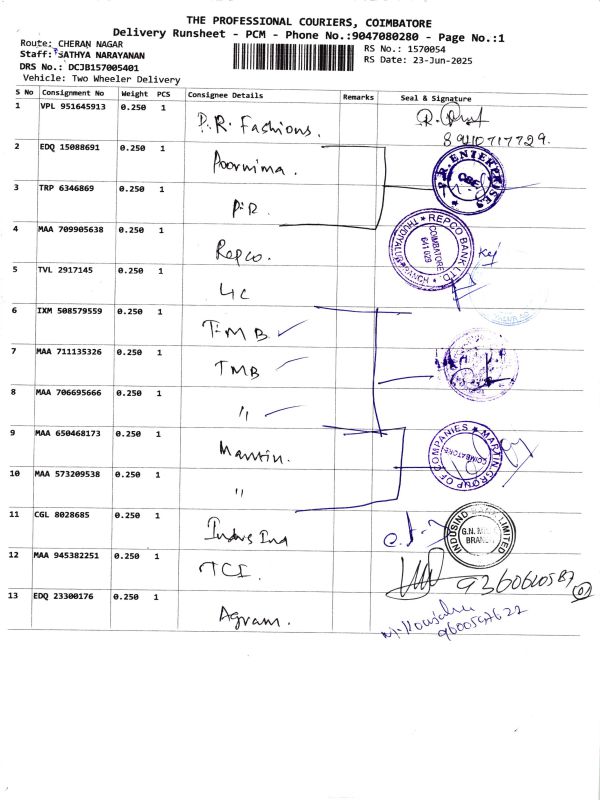 THE PROFESSIONAL COURIERS, COIMBATORE
Delivery Runsheet - PCM - Phone No.:9047080280 - Page No.:1
Route: CHERAN NAGAR
Staff: SATHYA NARAYANAN
DRS No.: DCJB157005401
Vehicle: Two Wheeler Delivery
RS No.: 1570054
RS Date: 23-Jun-2025
S No Consignment No Weight PCS Consignee Details Remarks Seal & Signature
1 VPL 951645913 0.250 1 P.R. Fashions.
8940717729.
2 EDQ 15088691 0.250 1 Poornima.
3 TRP 6346869 0.250 1 P.R.
P.R.ENTERPRISES
CBE
4 MAA 709905638 0.250 1 Repco.
REPCO BANK LTD.
COIMBATORE
641 029
BRANCH
5 TVL 2917145 0.250 1 LIC
6 IXM 508579559 0.250 1 TMB
7 MAA 711135326 0.250 1 TMB
8 MAA 706695666 0.250 1 "
9 MAA 650468173 0.250 1 Martin.
10 MAA 573209538 0.250 1 "
MARTIN GROUP OF COMPANIES
COIMBATORE
11 CGL 8028685 0.250 1 Indus Ind
INDUSIND BANK LIMITED
G.N. MILLS
BRANCH
12 MAA 945382251 0.250 1 TCI.
13 EDQ 23300176 0.250 1 Agram.
9600547622